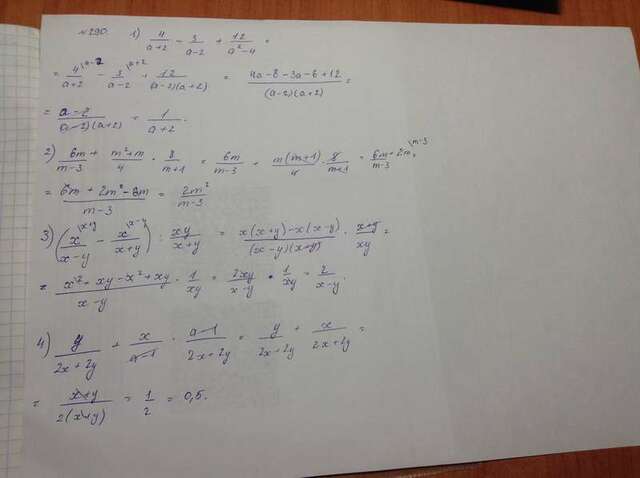 №290. 1) 4/(a+2) - 3/(a-2) + 12/(a²-4) =
= 4\a-2/(a+2) - 3\a+2/(a-2) + 12/((a-2)(a+2)) = (4a-8-3a-6+12)/((a-2)(a+2)) =
= (a-2)/((a-2)(a+2)) = 1/(a+2).
2) 6m/(m-3) + (m²+m)/4 · 8/(m+1) = 6m/(m-3) + m(m+1)/4 · 8/(m+1) = 6m/(m-3) + 2m\m-3 =
= (6m+2m²-6m)/(m-3) = 2m²/(m-3)
3) (x\x+y/(x-y) - x\x-y/(x+y)) : xy/(x+y) = (x(x+y)-x(x-y))/((x-y)(x+y)) · (x+y)/xy =
= (x²+xy-x²+xy)/(x-y) · 1/xy = 2xy/(x-y) · 1/xy = 2/(x-y).
4) y/(2x+2y) + x/(a-1) · (a-1)/(2x+2y) = y/(2x+2y) + x/(2x+2y) =
= (x+y)/(2(x+y)) = 1/2 = 0,5.